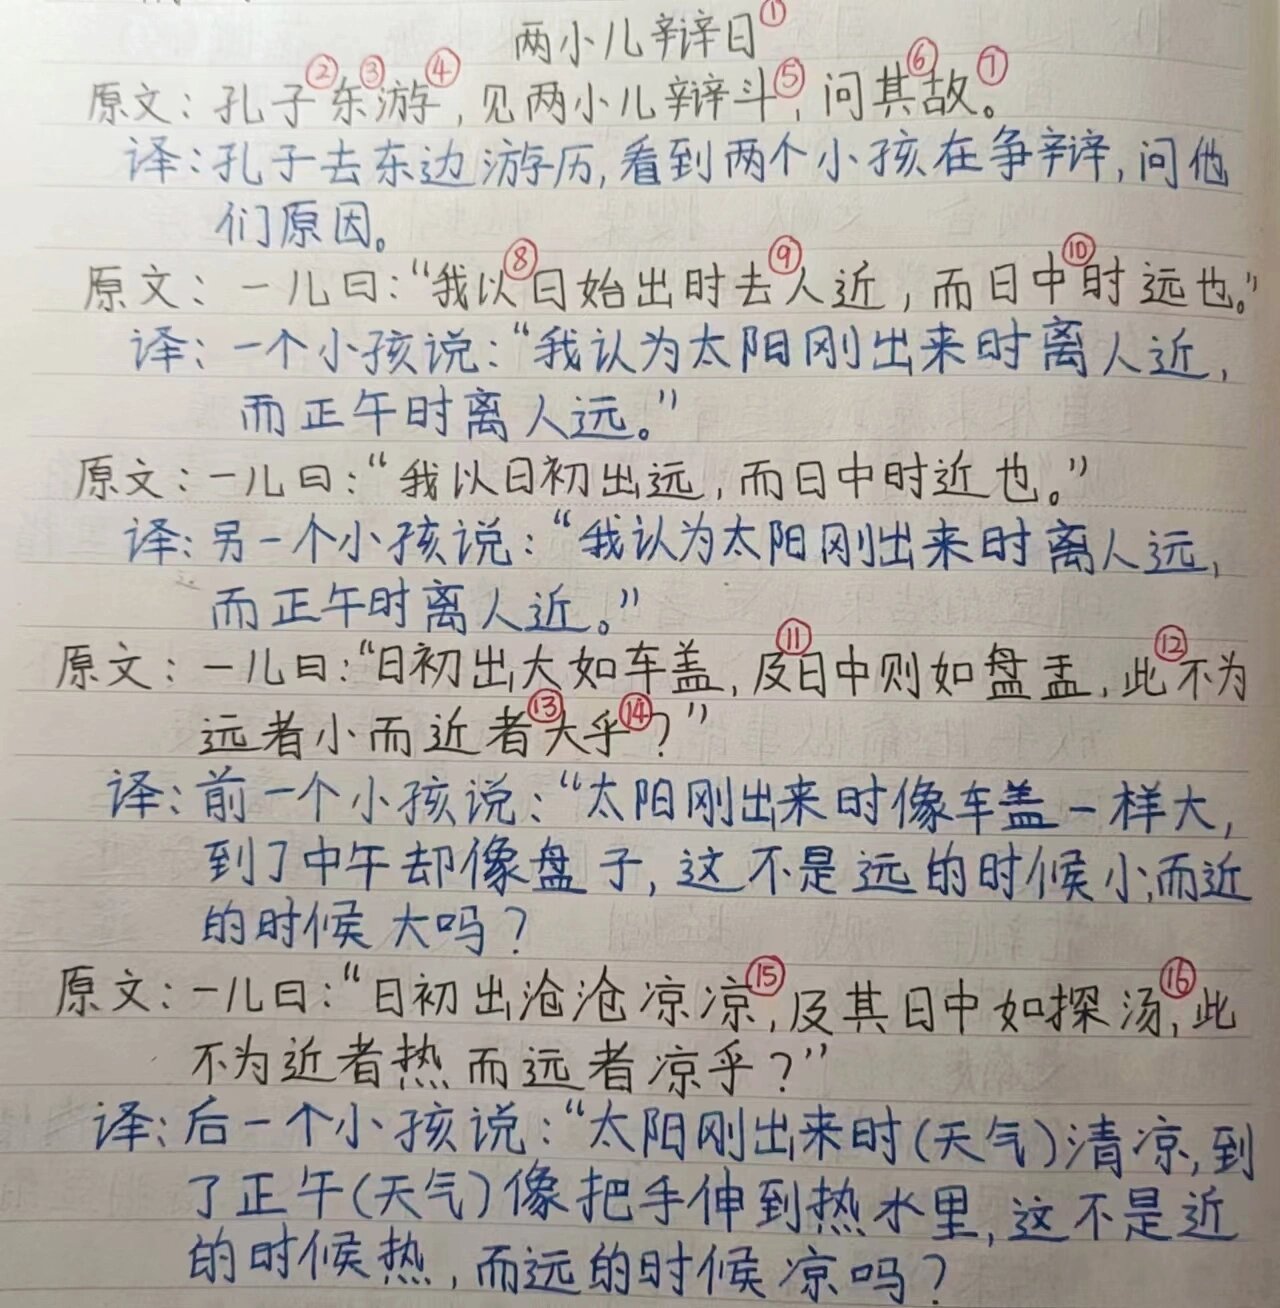 两小儿辩日①
原文：孔子②东③游④，见两小儿辩斗⑤，问其⑥故⑦。
译：孔子去东边游历，看到两个小孩在争辩，问他
们原因。
原文：一儿曰：“我以⑧日始出时去⑨人近，而日中⑩时远也。”
译：一个小孩说：“我认为太阳刚出来时离人近，
而正午时离人远。”
原文：一儿曰：“我以日初出远，而日中时近也。”
译：另一个小孩说：“我认为太阳刚出来时离人远，
而正午时离人近。”
原文：一儿曰：“日初出大如车盖，及⑪日中则如盘盂，此⑫不为
远者小而近者⑬大乎⑭？”
译：前一个小孩说：“太阳刚出来时像车盖一样大，
到了中午却像盘子，这不是远的时候小，而近
的时候大吗？
原文：一儿曰：“日初出沧沧凉凉⑮，及其日中如探汤⑯，此
不为近者热而远者凉乎？”
译：后一个小孩说：“太阳刚出来时（天气）清凉，到
了正午（天气）像把手伸到热水里，这不是近
的时候热，而远的时候凉吗？